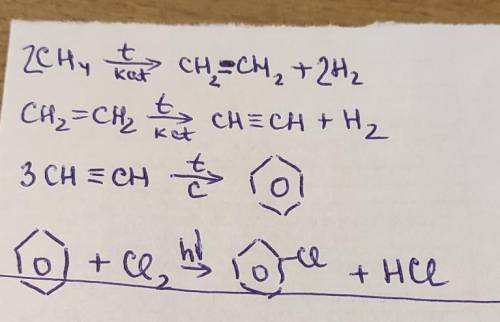 2CH₄ t/кат → CH₂=CH₂ + 2H₂
CH₂=CH₂ t/кат → CH≡CH + H₂
3CH≡CH t/C →
+ Cl₂ hν → Cl + HCl